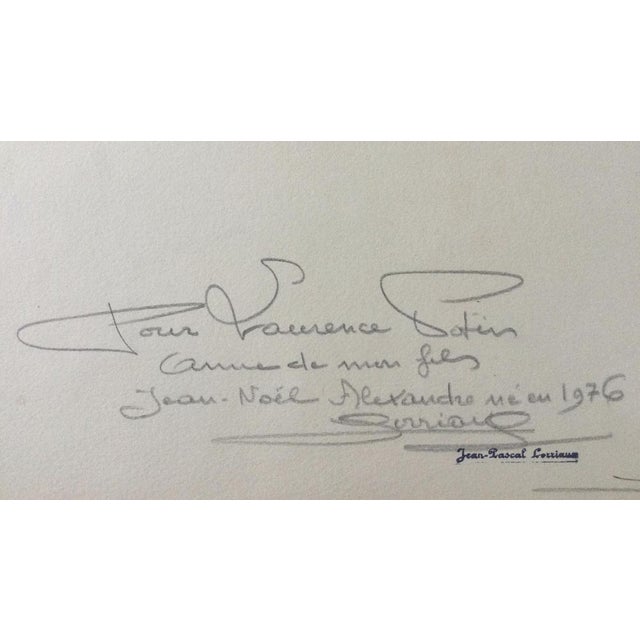 Pour Laurence Potin
année de mon fils
Jean-Noël Alexandre né en 1976
Lorriaux
Jean-Pascal Lorriaux